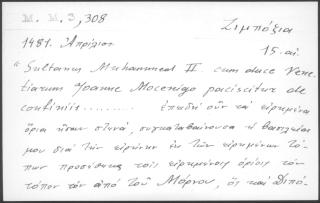 M. M. 3, 308
Ζιμπόξια
1481. Ἀπρίλιος
15. αἰ.
"Sultanus Muhammed II. cum duce Vene
tiarum Joanne Mocenigo paciscitur de
confiniis ......... ἐπειδὴ οὖν τὰ εἰρημένα
ὅρια ἦσαν στενά, συγκαταβαίνουσα ἡ βασιλεία
μου διὰ τὴν εἰρήνην ἐκ τῶν εἰρημένων τό-
πων προσέθηκε τοῖς εἰρημένοις ὁρίοις τὸν
τόπον τὸν ἀπὸ τοῦ Μόρνου, ὃς καὶ